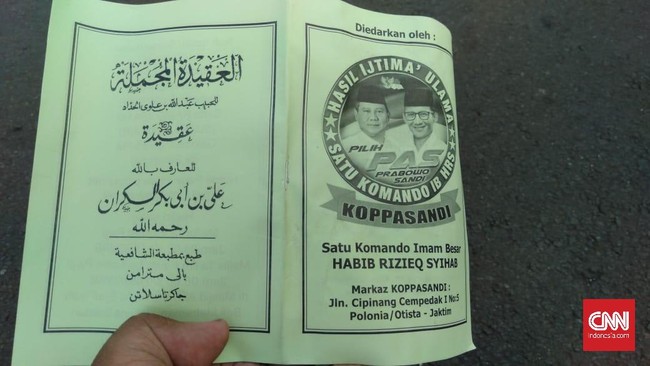 العقيدة المجملة
للحبيب عبد الله بن علوي الحداد
عقيدة
للعارف بالله
علي بن أبي بكر السكران
رحمه الله
طبع بمطبعة الشافعية
بالي مترامن
جاكرتا سلاتن
Diedarkan oleh :
HASIL IJTIMA' ULAMA
PILIH
PAS
PRABOWO
SANDI
SATU KOMANDO IB HRS
KOPPASANDI
Satu Komando Imam Besar
HABIB RIZIEQ SYIHAB
Markaz KOPPASANDI :
Jln. Cipinang Cempedak I No:5
Polonia/Otista - Jaktim
CNN
Indonesia.com